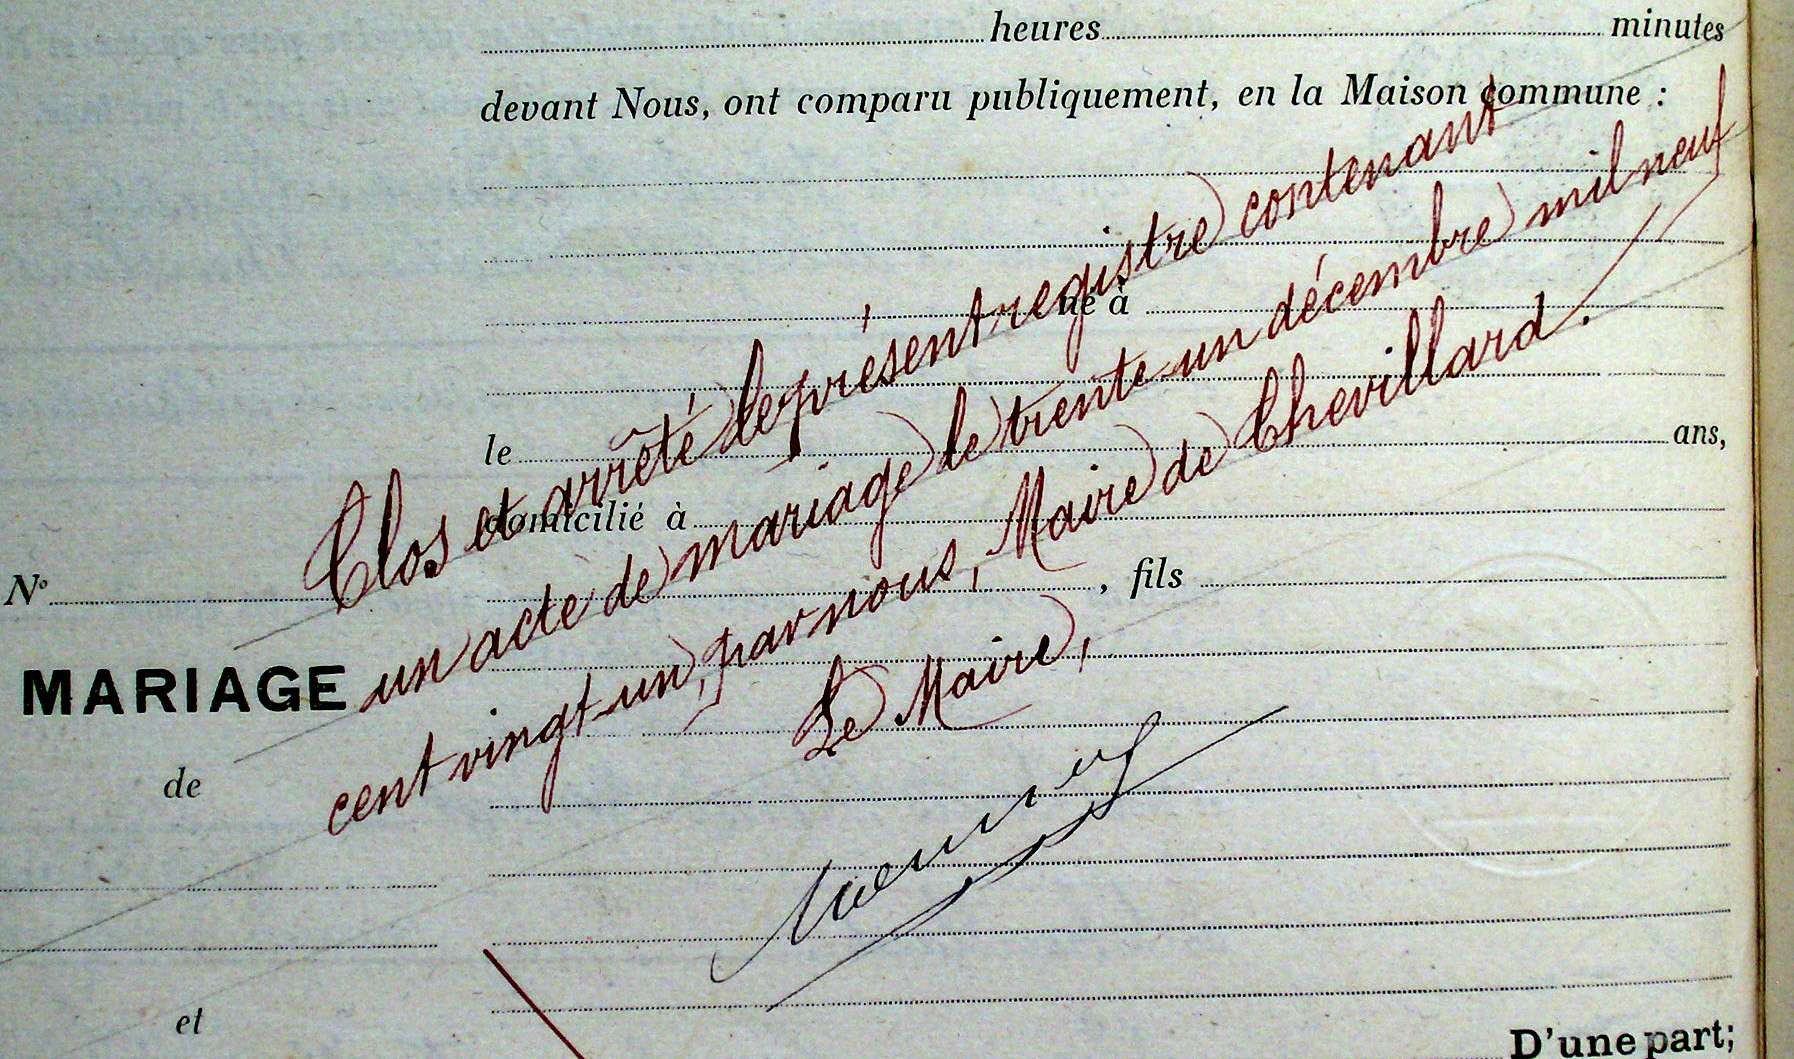 heures minutes
devant Nous, ont comparu publiquement, en la Maison commune :
né à
le ans,
domicilié à
, fils
Nº
MARIAGE
de
et
D'une part;
Clos et arrêté le présent registre contenant
un acte de mariage le trente-un décembre mil neuf
cent vingt-un, par nous, Maire de Chevillard.
Le Maire,